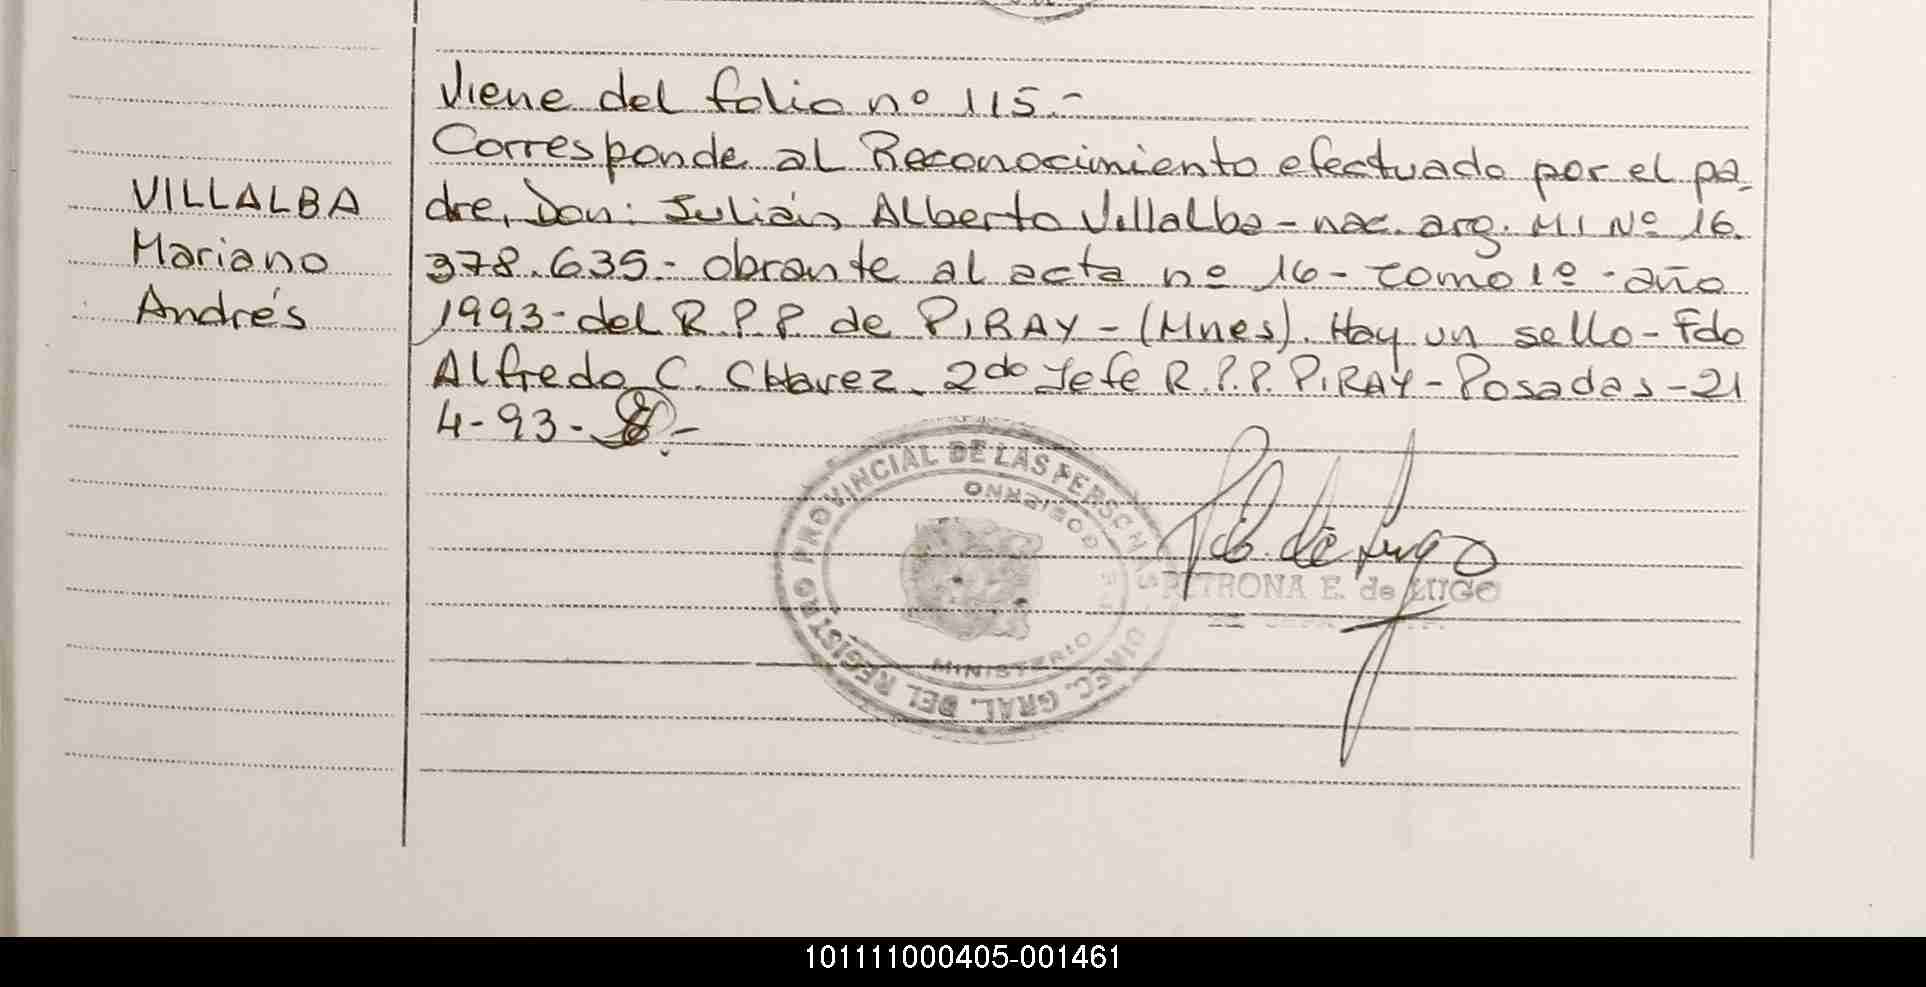 Viene del folio nº 115.-
Corresponde al Reconocimiento efectuado por el pa-
VILLALBA
Mariano
Andrés
dre, Don: Julián Alberto Villalba - nac. arg. MI Nº 16.
378.635.- obrante al acta nº 16 - tomo 1º - año
1993 - del R P P de PIRAY - (Mnes). Hay un sello - Fdo
Alfredo C. CHavez. 2do Jefe R.P.P. PIRAY - Posadas - 21
4-93-
DIREC. GRAL. DEL REGISTRO PROVINCIAL DE LAS PERSONAS
MINISTERIO
GOBIERNO
de Lugo
PETRONA E. de LUGO
101111000405-001461